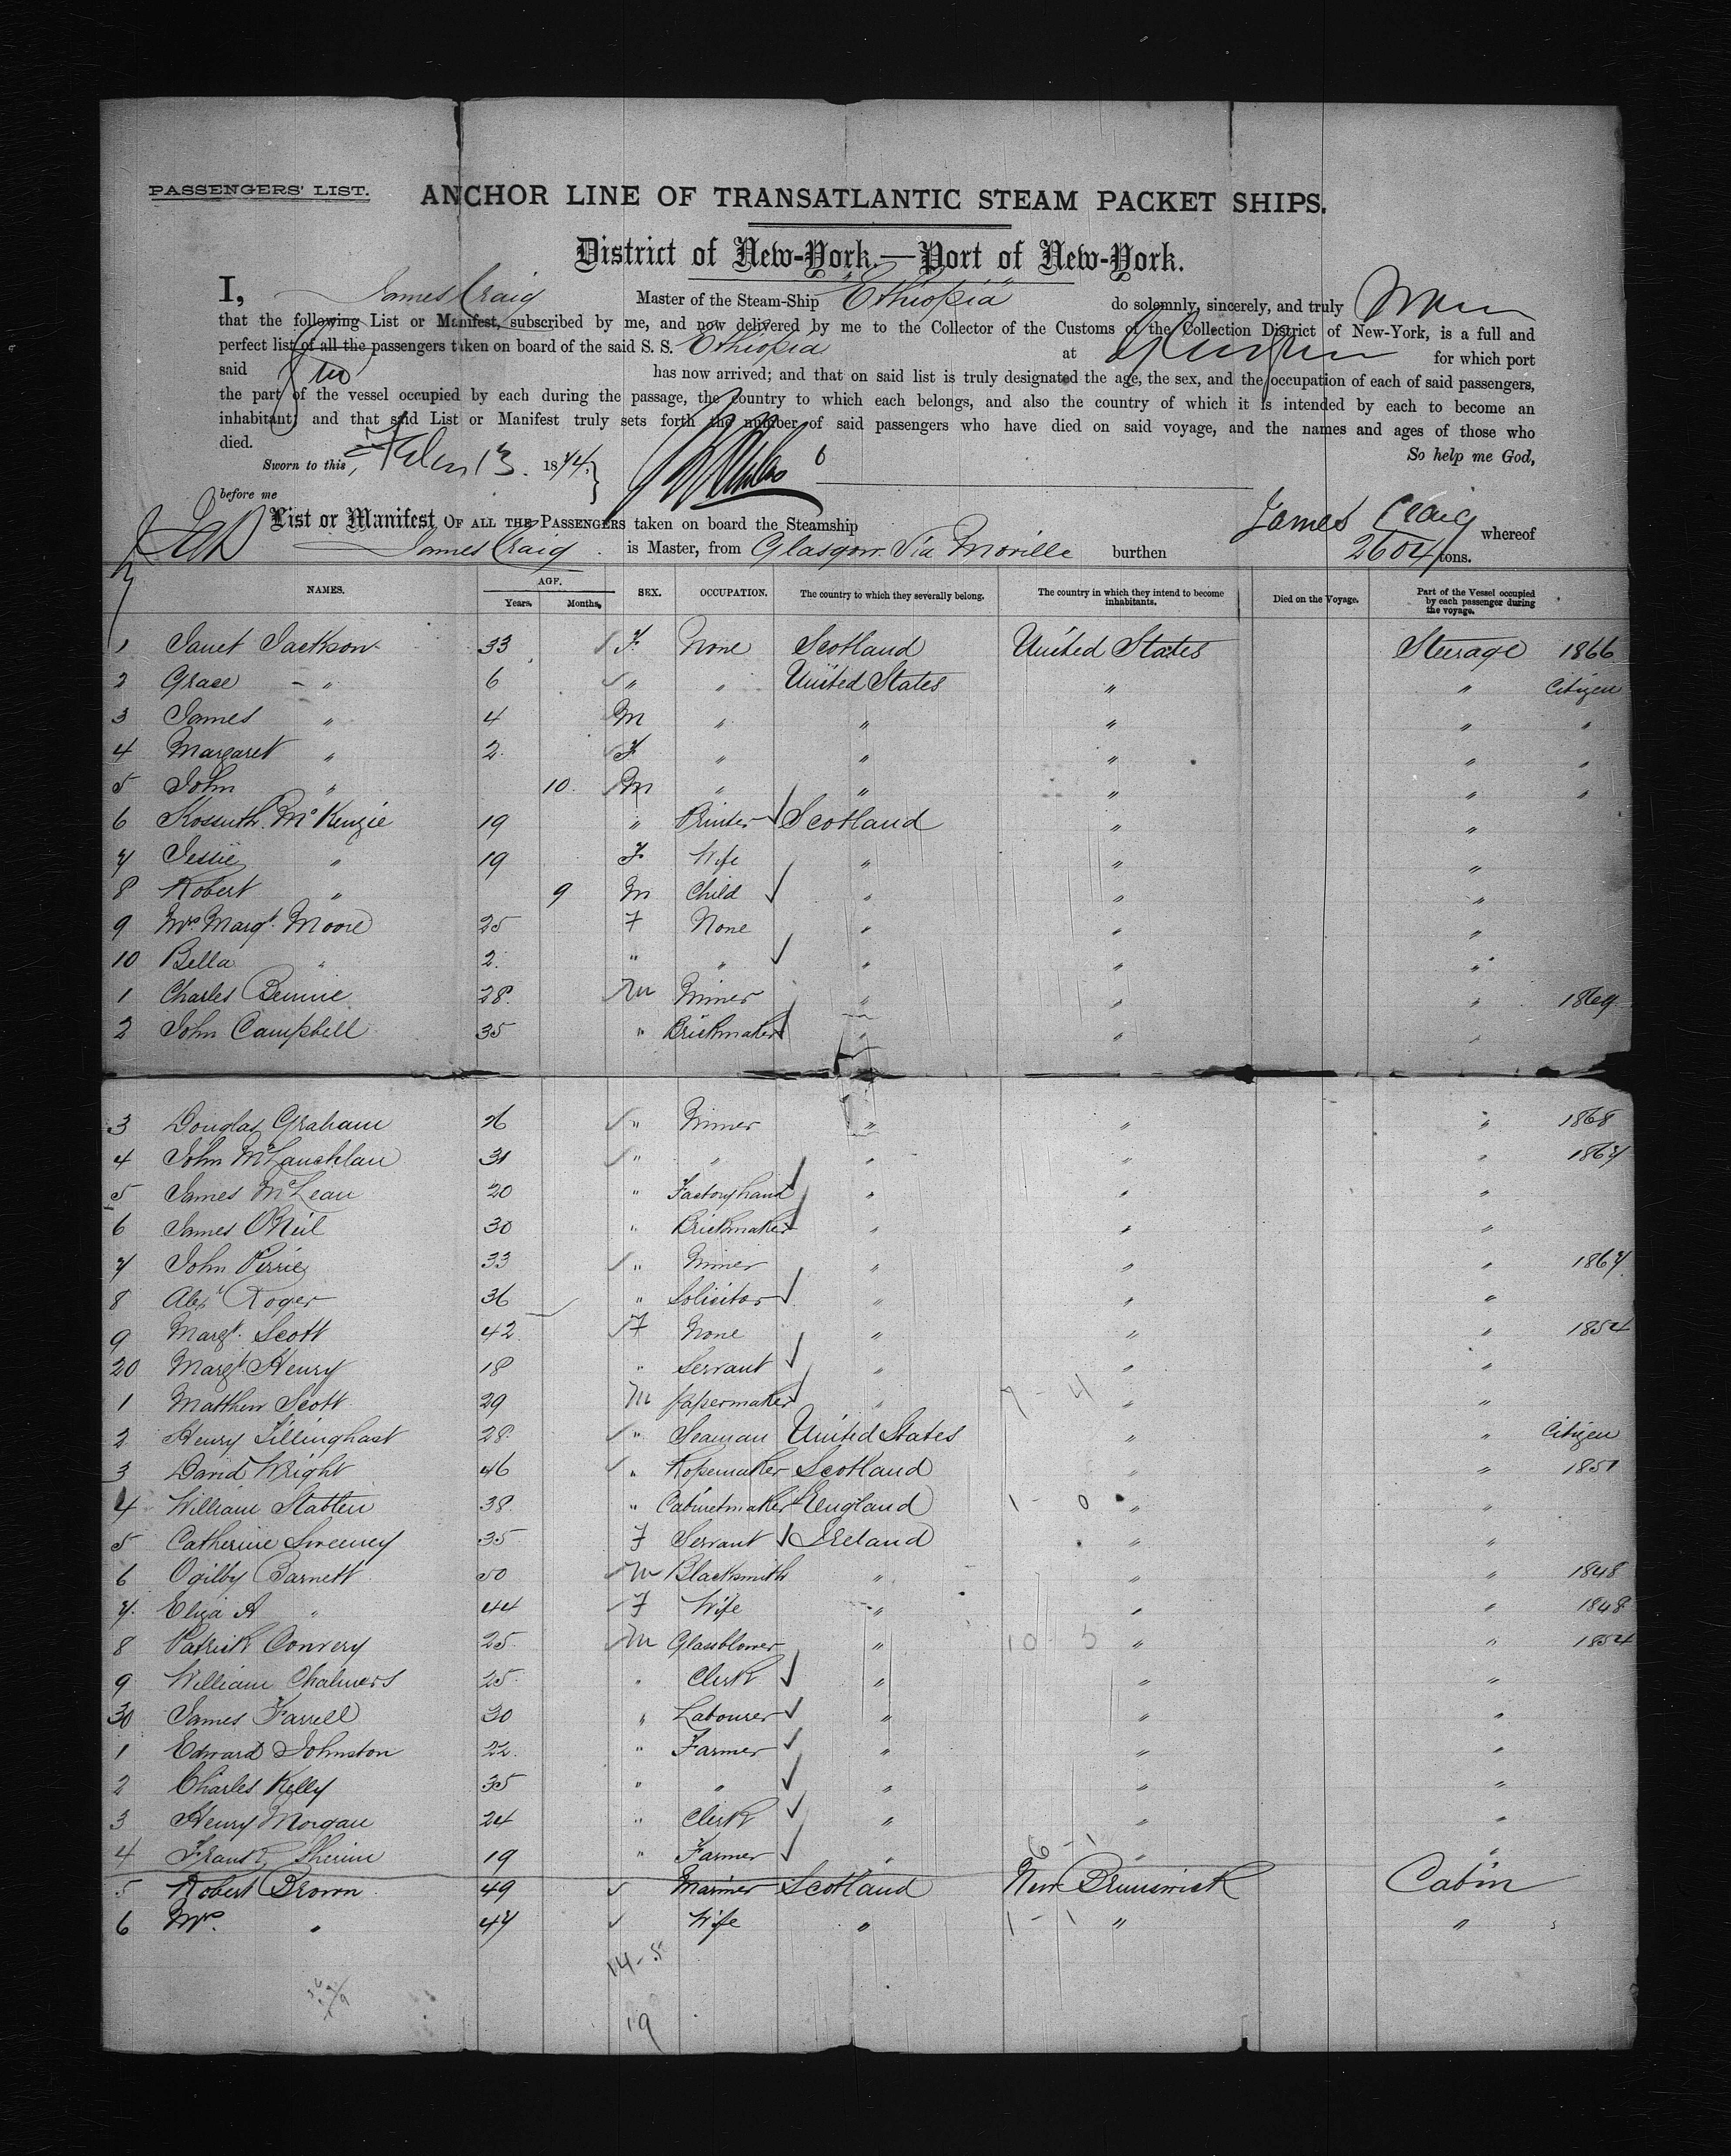 PASSENGERS' LIST.
ANCHOR LINE OF TRANSATLANTIC STEAM PACKET SHIPS.
District of New-York.—Port of New-York.
I, James Craig Master of the Steam-Ship "Ethiopia" do solemnly, sincerely, and truly
that the following List or Manifest, subscribed by me, and now delivered by me to the Collector of the Customs of the Collection District of New-York, is a full and
perfect list of all the passengers taken on board of the said S. S. Ethiopia at Glasgow for which port
said has now arrived; and that on said list is truly designated the age, the sex, and the occupation of each of said passengers,
the part of the vessel occupied by each during the passage, the country to which each belongs, and also the country of which it is intended by each to become an
inhabitant; and that said List or Manifest truly sets forth the number of said passengers who have died on said voyage, and the names and ages of those who
died. So help me God,
Sworn to this 13 1874
before me
James Craig
List or Manifest OF ALL THE PASSENGERS taken on board the Steamship whereof
James Craig is Master, from Glasgow Via Moville burthen 2604 tons.
NAMES. AGE. Years. Months. SEX. OCCUPATION. The country to which they severally belong. The country in which they intend to become inhabitants. Died on the Voyage. Part of the Vessel occupied by each passenger during the voyage.
1 Janet Jackson 33 F None Scotland United States Steerage 1866
2 Grace " 6 " " United States " " Citizen
3 James " 4 M " " " " "
4 Margaret " 2 F " " " " "
5 John " 10 M " " " " "
6 Kossuth McKenzie 19 " Printer Scotland " "
7 Jessie " 19 F Wife " " "
8 Robert " 9 M Child " " "
9 Mrs Margt Moore 25 F None " " "
10 Bella " 2 " " " " "
1 Charles Bennie 28 M Miner " " " 1869
2 John Campbell 35 " Brickmaker " " "
3 Douglas Graham 26 " Miner " " " 1868
4 John McLauchlan 31 " " " " " 1867
5 James McLean 20 " Factoryhand " " "
6 James O'Neil 30 " Brickmaker " " "
7 John Pirrie 33 " Miner " " " 1867
8 Alexr Roger 36 " Solicitor " " "
9 Margt. Scott 42 F None " " " 1854
20 Margt Henry 18 " Servant " " "
1 Matthew Scott 29 M Papermaker " 7 - 4 " "
2 Henry Tillinghast 28 " Seaman United States " " Citizen
3 David Wright 46 " Ropemaker Scotland " " 1851
4 William Statten 38 " Cabinetmaker England 1 - 0 " "
5 Catherine Sweeney 35 F Servant Ireland " "
6 Ogilby Barnett 50 M Blacksmith " " " 1848
7 Eliza A " 44 F Wife " " " 1848
8 Patrick Convery 25 M Glassblower " 10 5 " " 1854
9 William Chalmers 25 " Clerk " " "
30 James Farrell 30 " Labourer " " "
1 Edward Johnston 22 " Farmer " " "
2 Charles Kelly 35 " " " " "
3 Henry Morgan 24 " Clerk " " "
4 19 " Farmer " 6 - 1 " "
5 Robert Brown 49 Mariner Scotland New Brunswick Cabin
6 Mrs. " 47 Wife " 1 - 1 " "
14-5
19